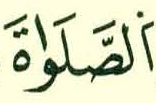 اَلصَّلَوٰاةَ